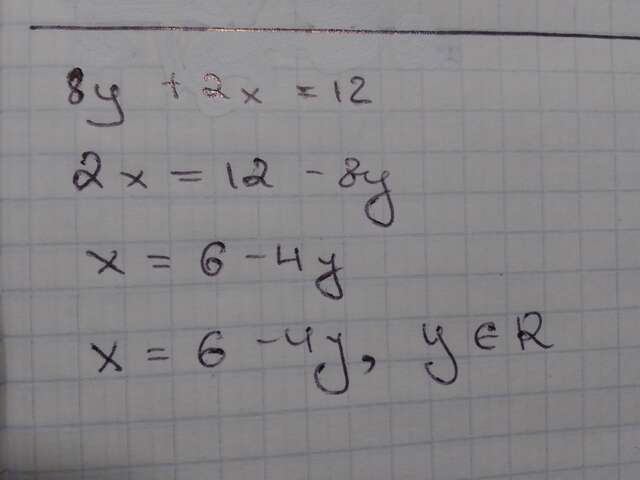 8y + 2x = 12
2x = 12 - 8y
x = 6 - 4y
x = 6 - 4y, y ∈ R